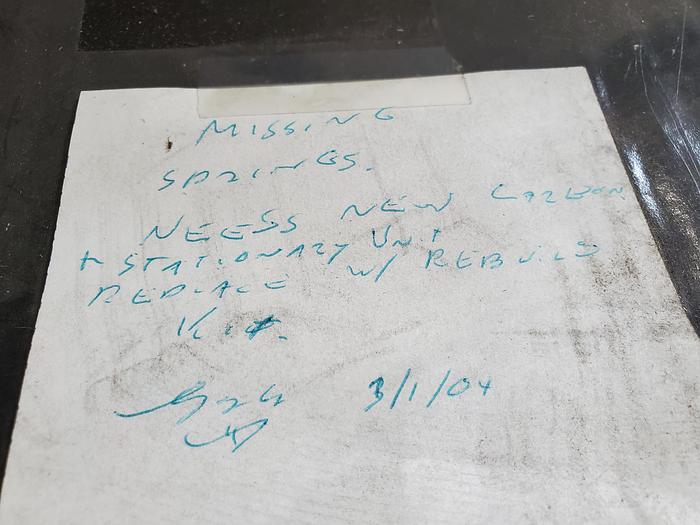 MISSING
SPRINGS.
NEEDS NEW CARBON
+ STATIONARY UNIT
REPLACE W/ REBUILD
KIT.
3/1/04